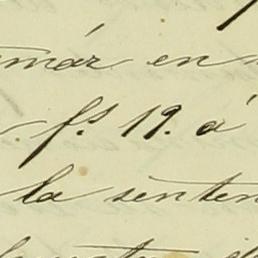 már en
fs. 19. á
la senten